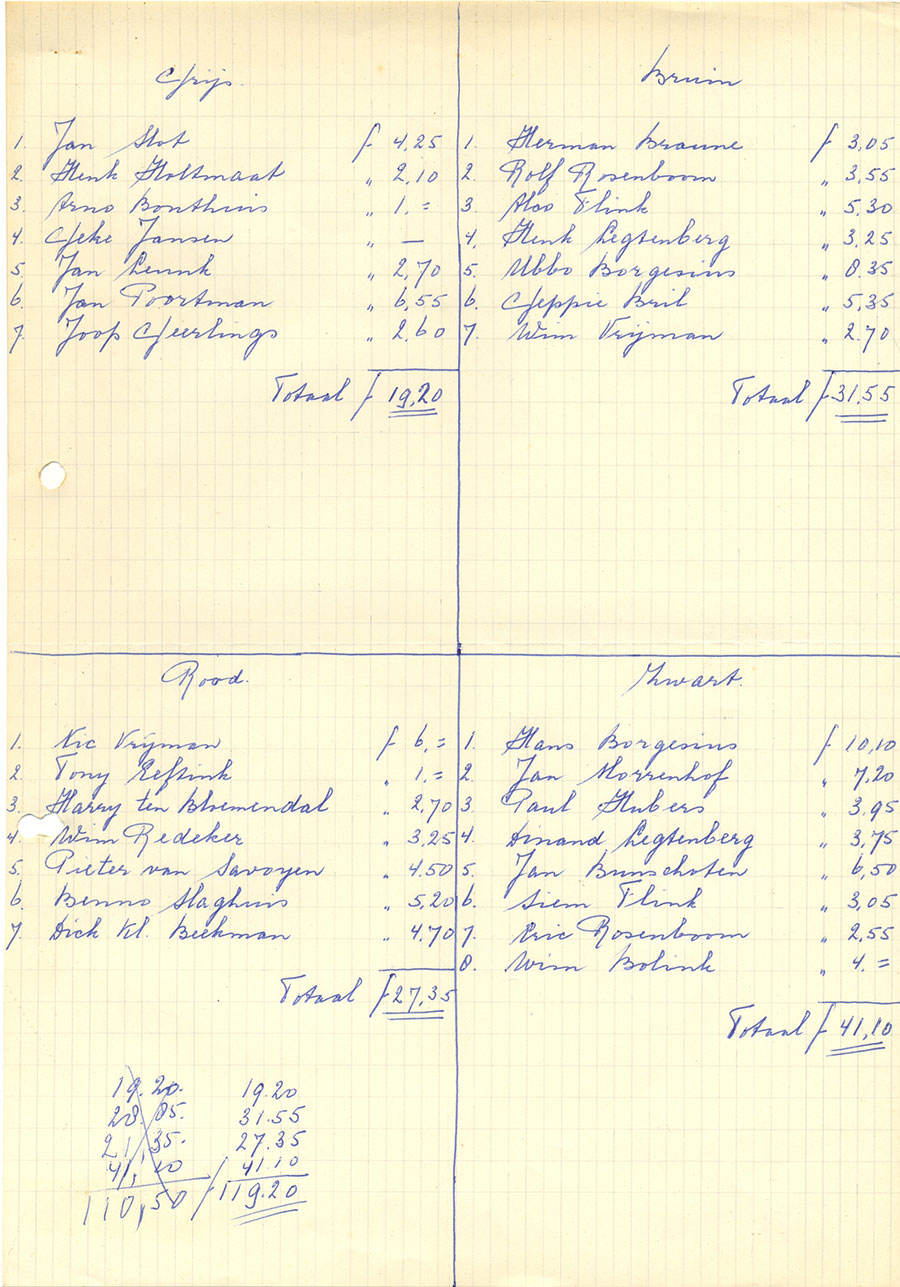 Grijs.
1. Jan Slot f 4,25
2. Henk Holtmaat " 2,10
3. Arno Bonthuis " 1.=
4. Geke Jansen " —
5. Jan Leunk " 2,70
6. Jan Poortman " 6,55
7. Joop Geerlings " 2,60
Totaal f 19,20
Bruin
1. Herman Braune f 3,05
2. Rolf Rosenboom " 3,55
3. Alco Flink " 5,30
4. Henk Legtenberg " 3,25
5. Ubbo Borgesius " 8.35
6. Geppie Bril " 5,35
7. Wim Vrijman " 2.70
Totaal f 31,55
Rood.
1. Nic Vrijman f 6,=
2. Tony Eeftink " 1.=
3. Harry ten Bloemendal " 2,70
4. Wim Redeker " 3,25
5. Pieter van Savoyen " 4.50
6. Benno Slaghuis " 5,20
7. Dick Kl. Beekman " 4,70
Totaal f 27,35
Zwart.
1. Hans Borgesius f 10,10
2. Jan Morrenhof " 7,20
3. Paul Hubers " 3,95
4. Dinand Legtenberg " 3,75
5. Jan Bunschoten " 6,50
6. Siem Flink " 3,05
7. Eric Rosenboom " 2,55
8. Wim Bolink " 4.=
Totaal f 41,10
19.20. 19.20
28.85. 31.55
21,35. 27.35
41,10 41.10
110,50 f 119.20